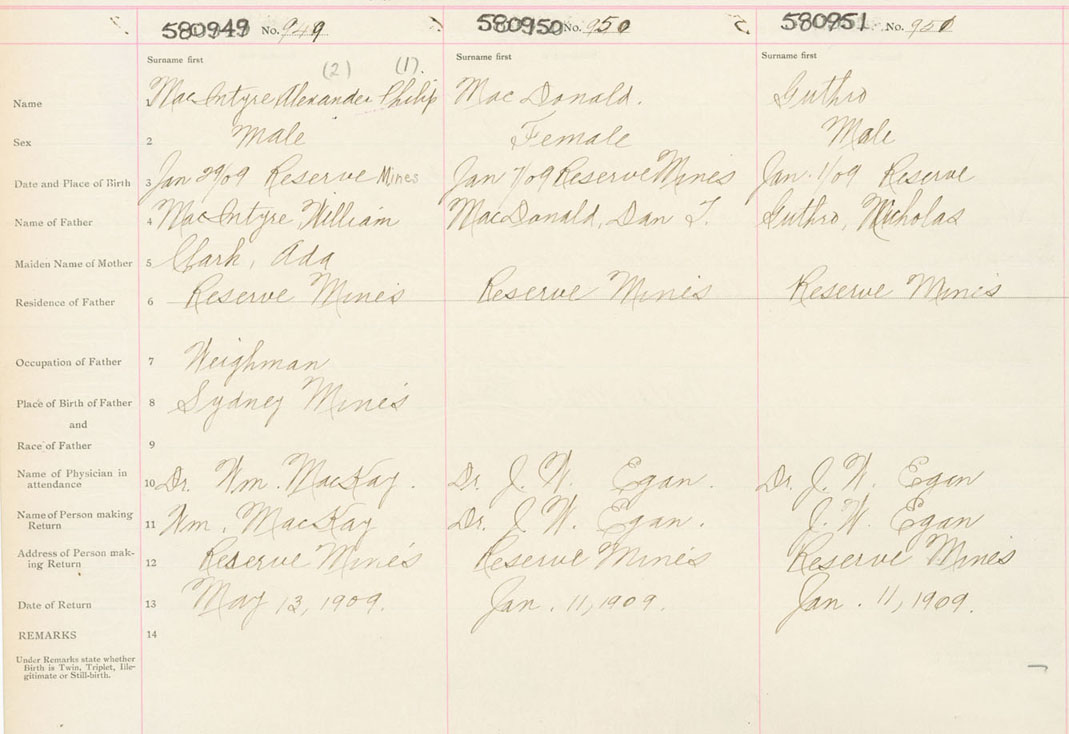 580949 No. 949 580950 No. 950 580951 No. 951
Surname first Surname first Surname first
(2) (1).
Name MacIntyre Alexander Philip MacDonald. Guthro
Sex 2 Male Female Male
Date and Place of Birth 3 Jan 29/09 Reserve Mines Jan 7/09 Reserve Mines Jan. 1/09 Reserve
Name of Father 4 MacIntyre William MacDonald, Dan J. Guthro, Nicholas
Maiden Name of Mother 5 Clark, Ada
Residence of Father 6 Reserve Mines Reserve Mines Reserve Mines
Occupation of Father 7 Weighman
Place of Birth of Father 8 Sydney Mines
and
Race of Father 9
Name of Physician in
attendance 10 Dr. Wm. MacKay. Dr. J. W. Egan. Dr. J. W. Egan
Name of Person making
Return 11 Wm. MacKay Dr. J. W. Egan. J. W. Egan
Address of Person mak-
ing Return 12 Reserve Mines Reserve Mines Reserve Mines
Date of Return 13 May 13, 1909. Jan. 11, 1909. Jan. 11, 1909.
REMARKS 14
Under Remarks state whether
Birth is Twin, Triplet, Ille-
gitimate or Still-birth.